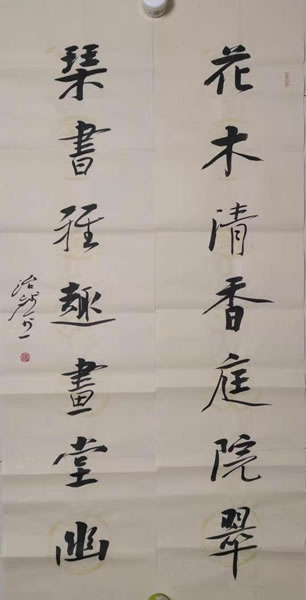 花木清香庭院翠
琹書雅趣畫堂幽